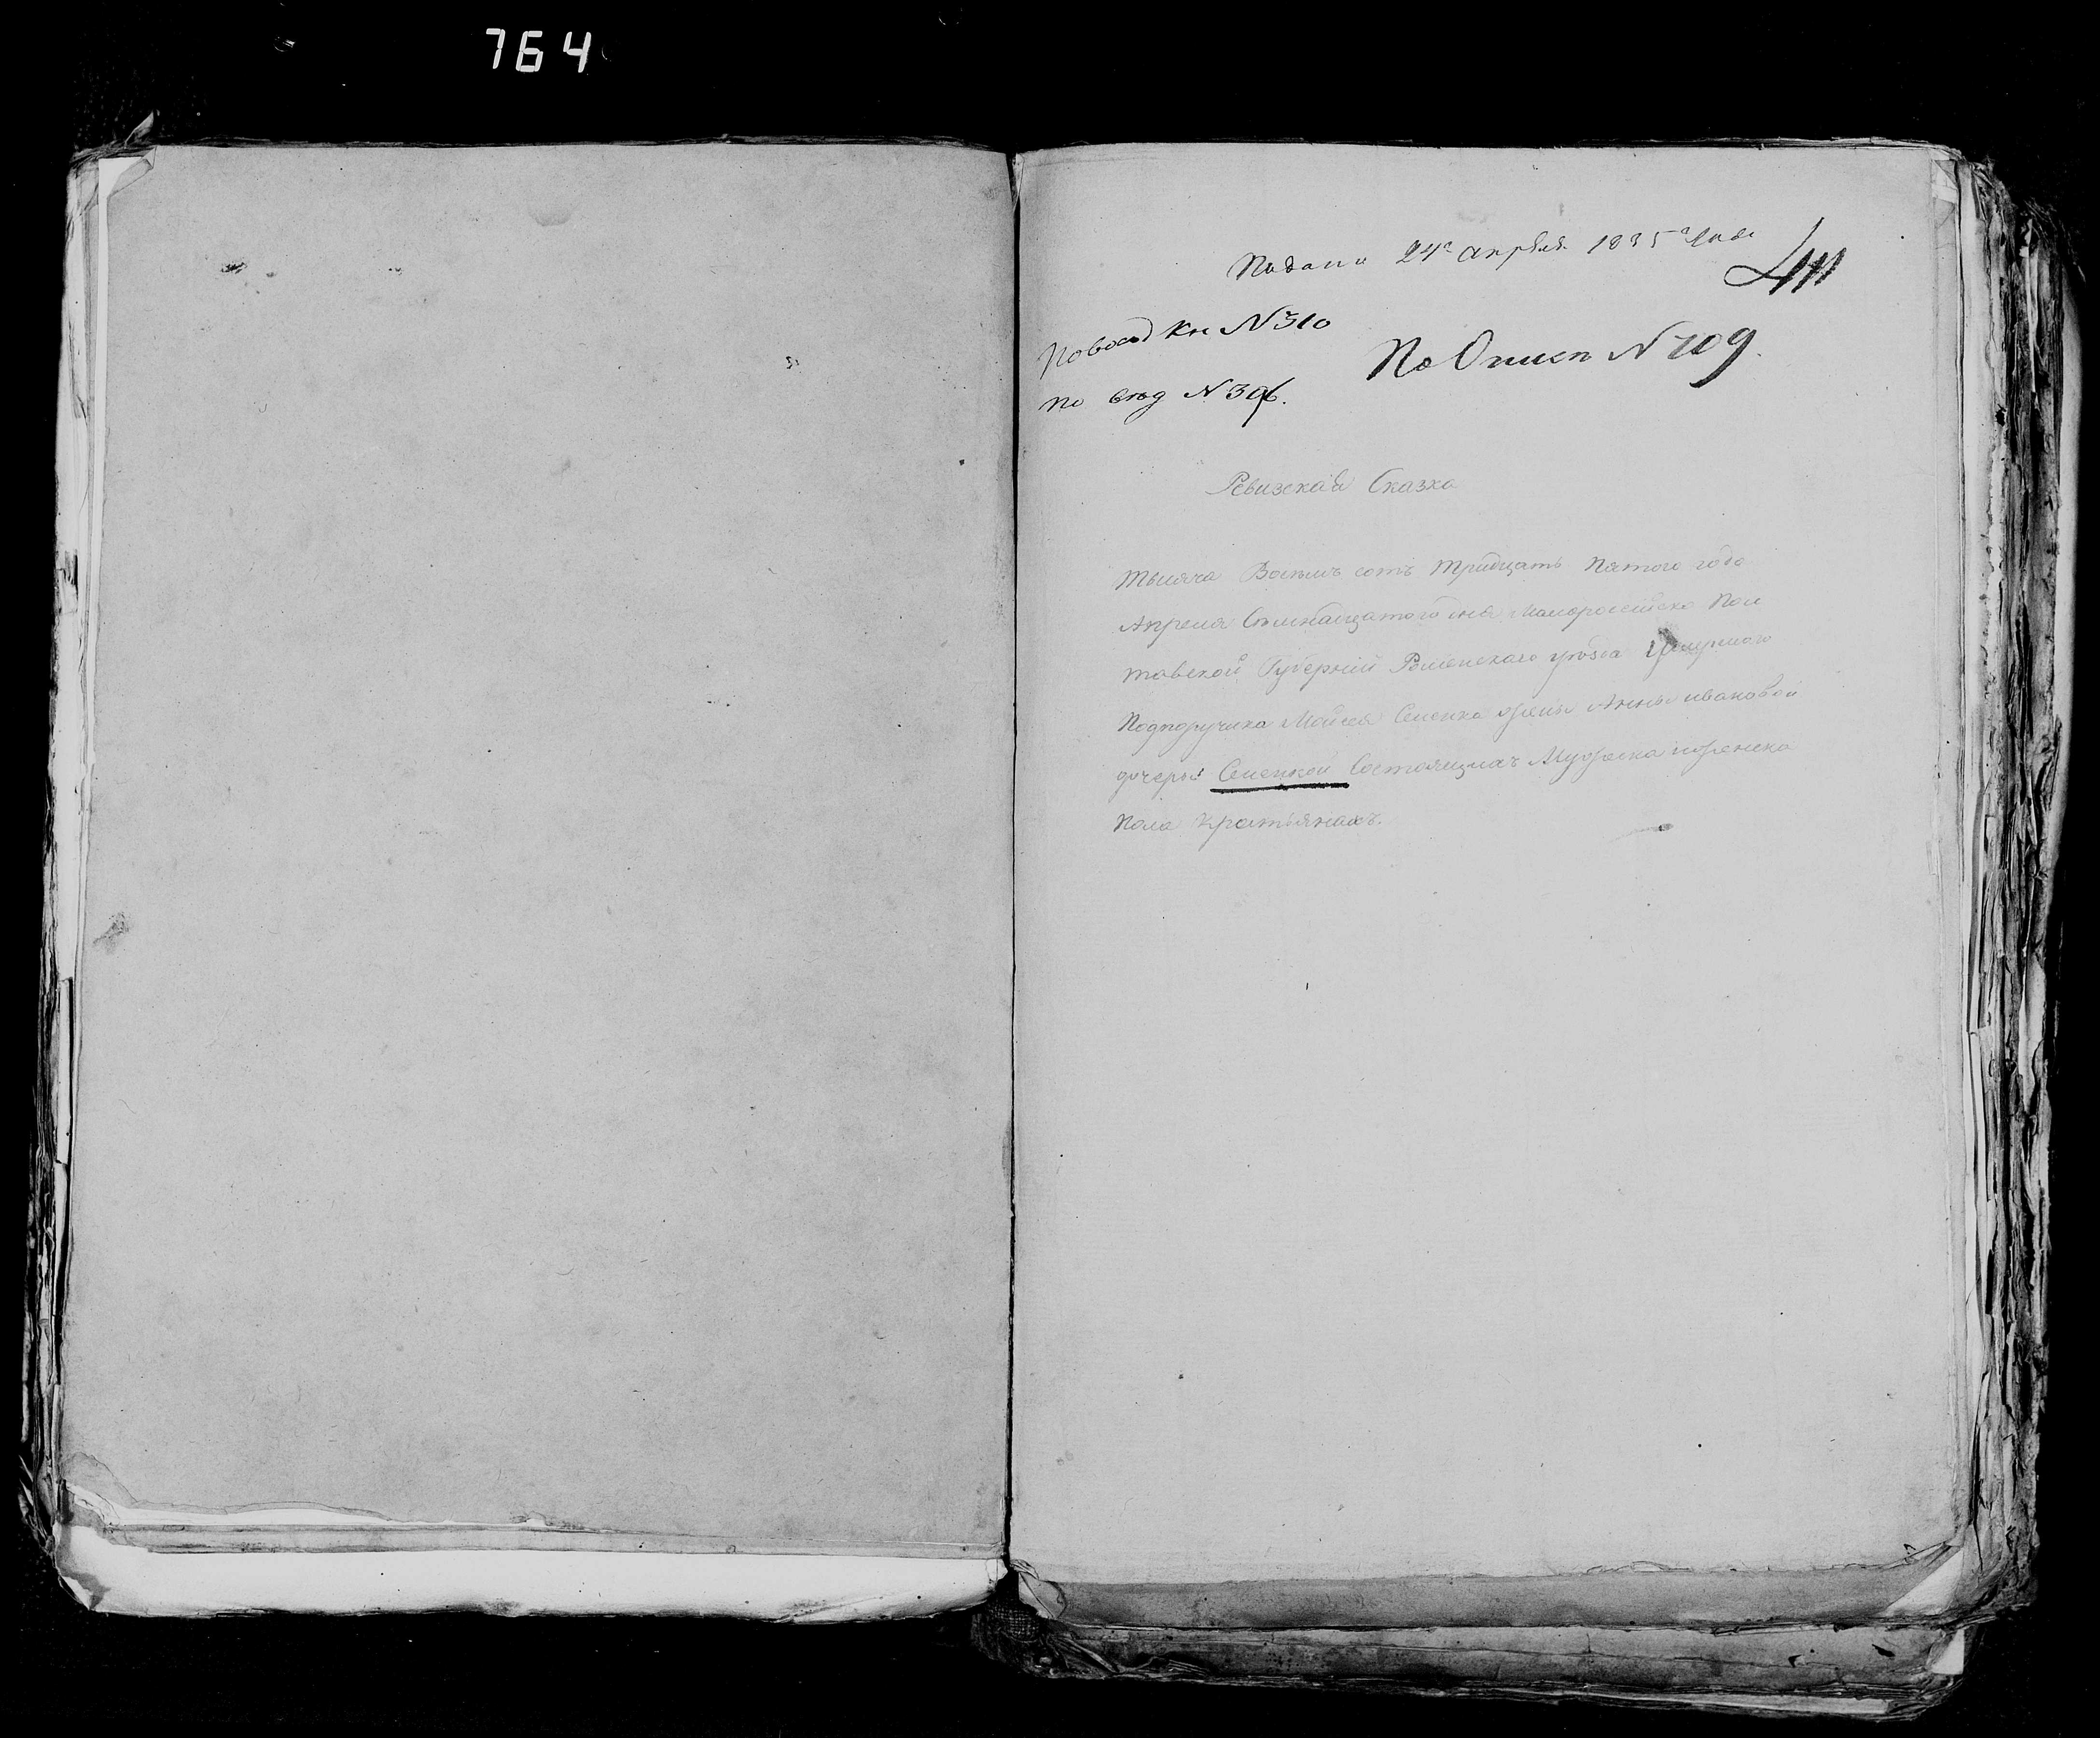 764
Подана 24го апреля 1835го Года
411
По вход Кн N 310
По Описи N 109.
по вход N 306.
Ревизская Сказка
Тысяча Восемь сотъ тридцать Пятого года
Апреля Семнадцатого дня Малоросийско Пол
тавской Губерний Роменскаго уезда умершаго
Подпоручика Мойсея Сененка жены Анны ивановой
дочеры Сененкой Состоящихъ Мужеска иженска
Пола крестьянахъ.